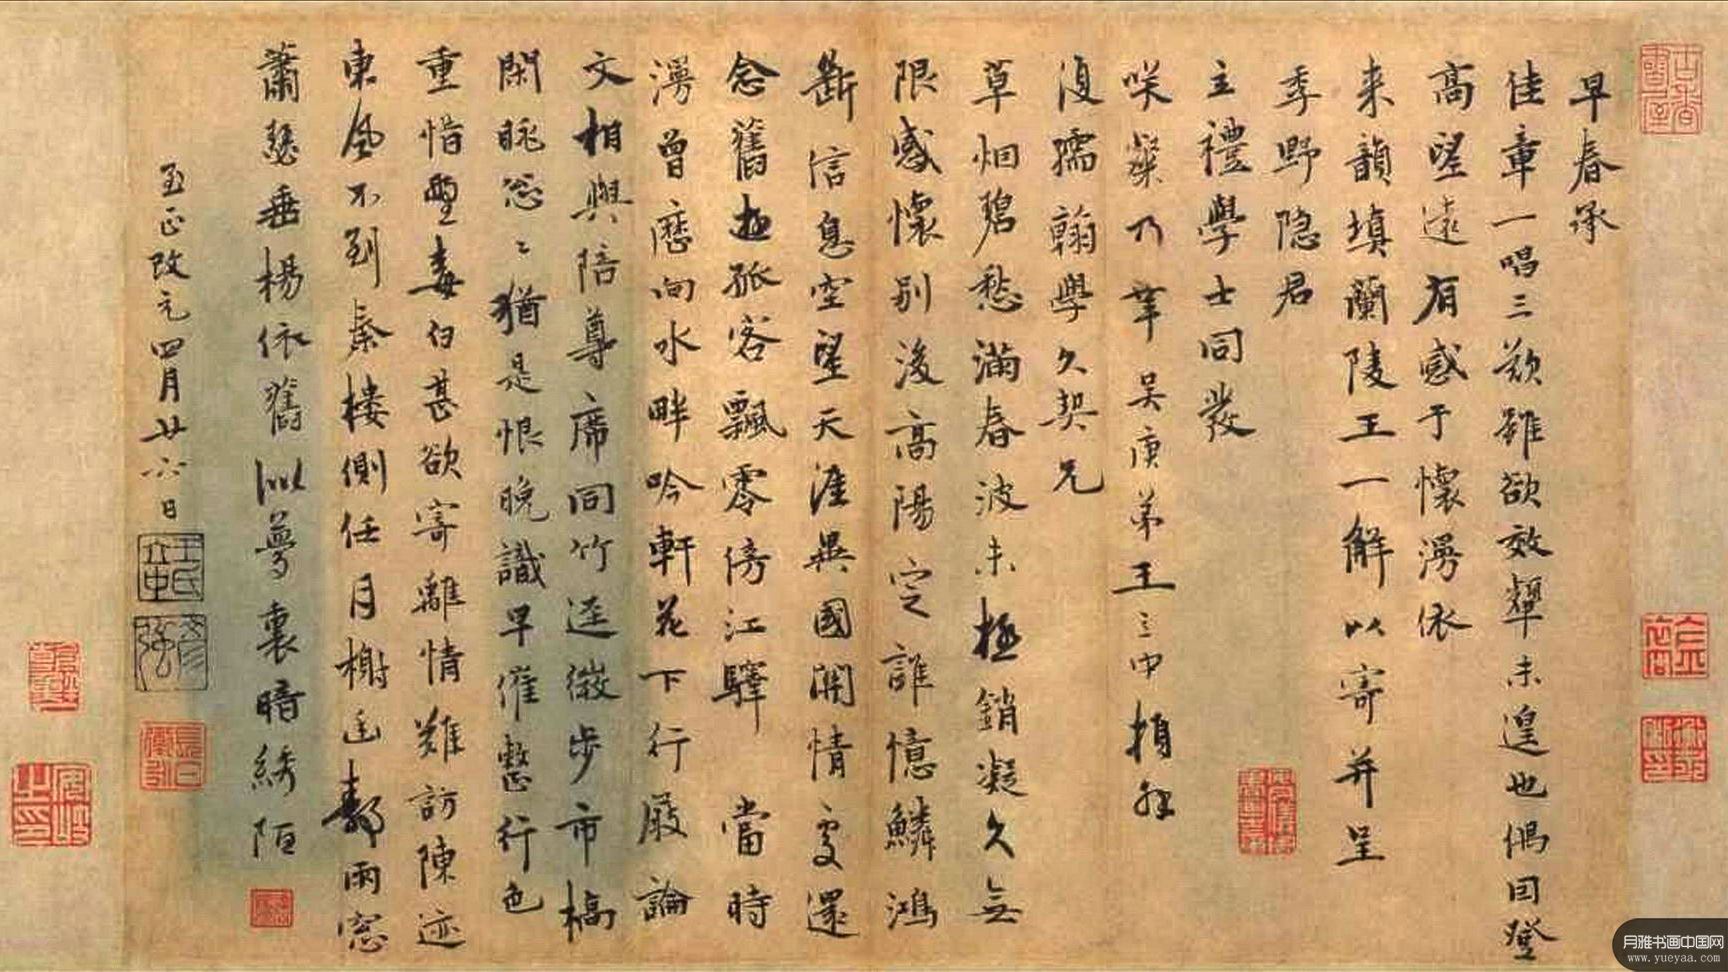 早春承
佳章一唱三歎雖欲效颦未遑也偶因登
高望遠有感于懷漫依
来韻填蘭陵王一解以寄并呈
季野隐君
立禮學士同發
咲粲乃幸吴庚弟王立中頓首
復孺翰學久契兄
草烟碧愁滿春波未極銷凝久無
限感懷别後高陽定誰憶鱗鴻
斷信息空望天涯異國閑情處還
念舊遊孤客飄零傍江驛 當時
漫曾歷向水畔吟軒花下行廚論
文相與陪尊席同竹逕微步市橋
閑眺忩〻猶是恨晚識早催整行色
重惜鬢毒白甚欲寄離情難訪陳迹
東風不到秦樓側任月榭遥静雨窓
蕭瑟垂楊依舊似夢裏暗綉陌
至正改元四月廿六日
月雅书画中国网
www.yueyaa.com